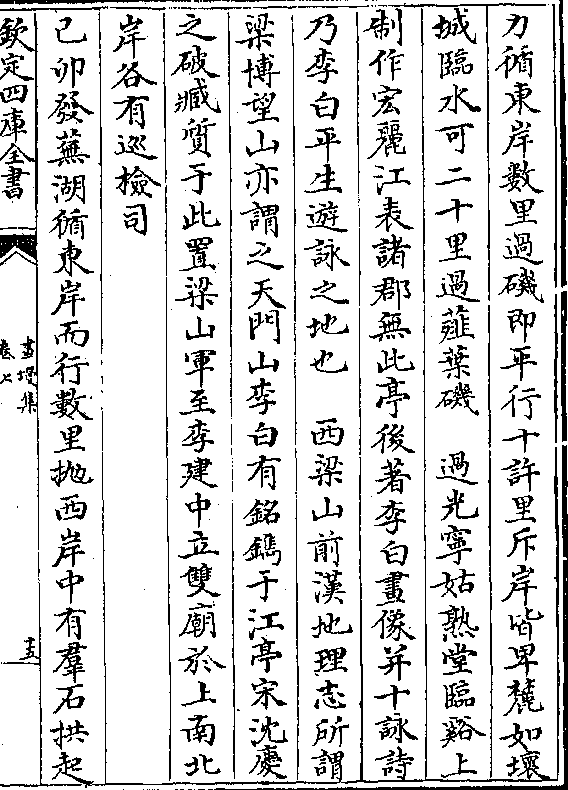 力循東岸數里過磯即平行十許里斥岸皆卑麓如壞
城臨水可二十里過薤葉磯　過光寧姑熟堂臨谿上
制作宏麗江表諸郡無此亭後著李白畫像并十詠詩
乃李白平生遊詠之地也　西梁山前漢地理志所謂
梁博望山亦謂之天門山李白有銘鐫于江亭宋沈慶
之破臧質于此置梁山軍至李建中立雙廟於上南北
岸各有巡檢司
己卯發蕪湖循東岸而行數里拋西岸中有羣石拱起
欽定四庫全書
畫墁集
卷七